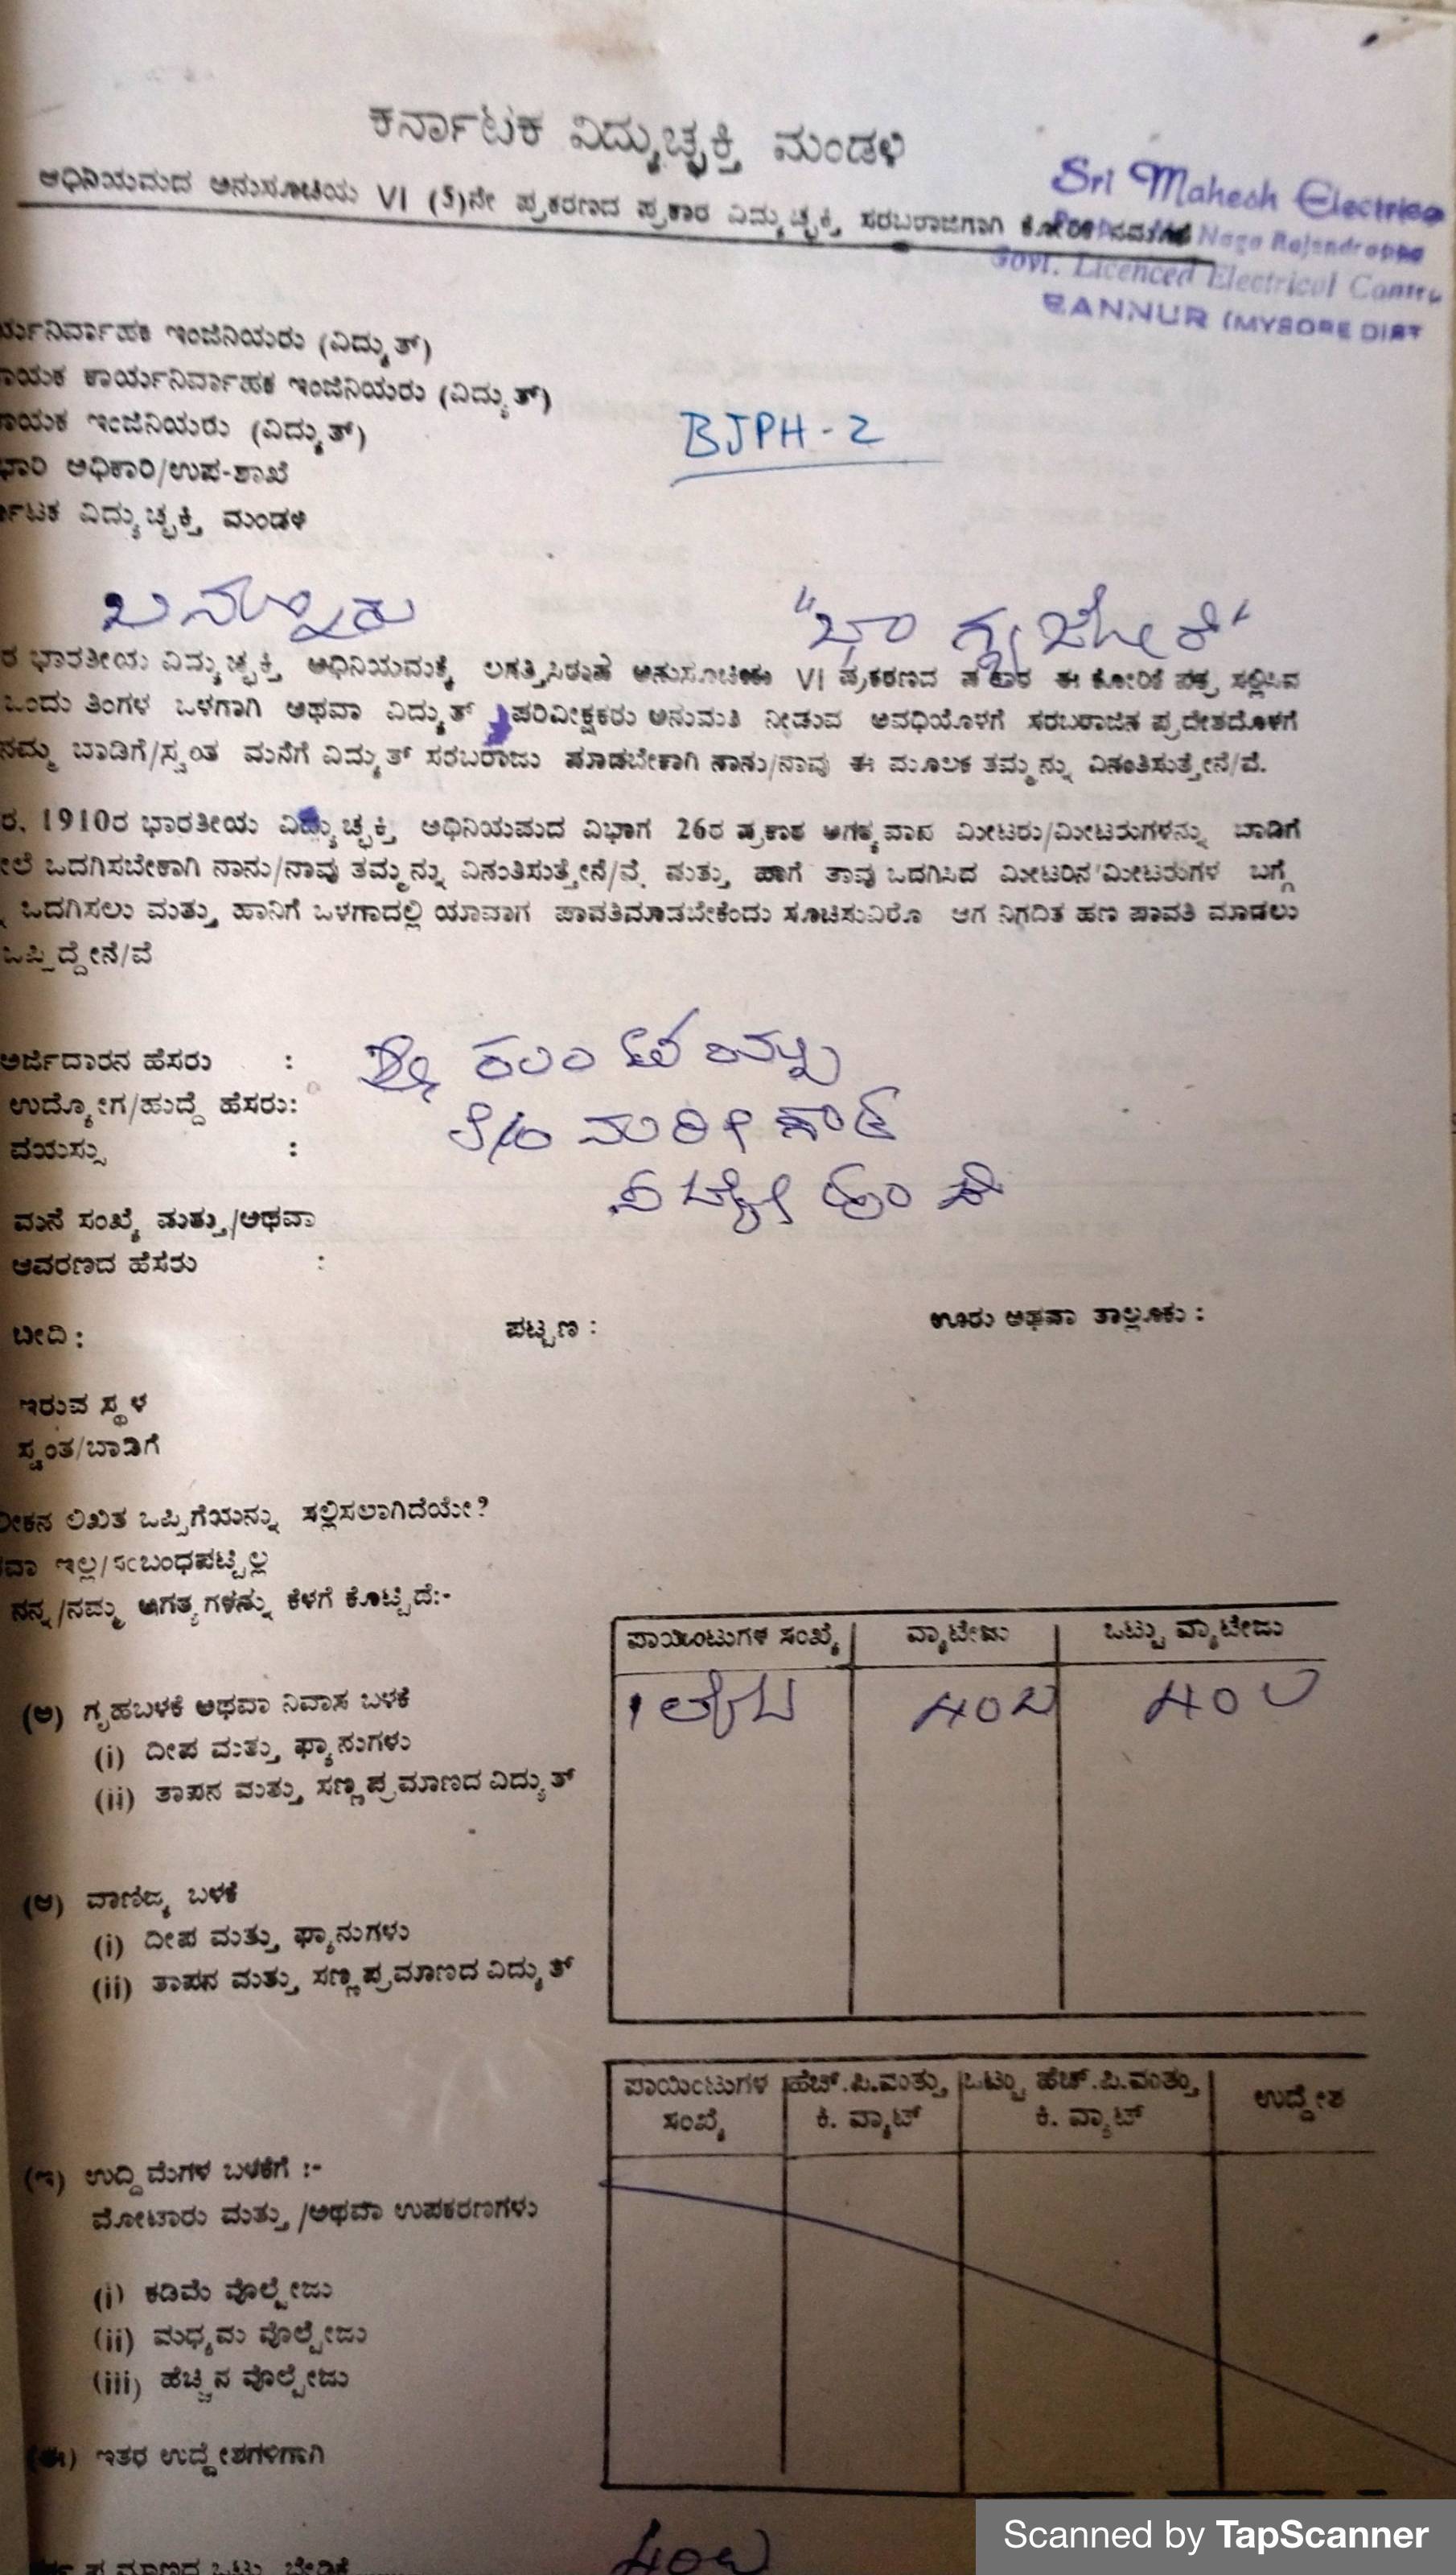 ಕರ್ನಾಟಕ ವಿದ್ಯುಚ್ಛಕ್ತಿ ಮಂಡಳಿ
ಅಧಿನಿಯಮದ ಅನುಸೂಚಿಯ VI (5)ನೇ ಪ್ರಕರಣದ ಪ್ರಕಾರ ವಿದ್ಯುಚ್ಛಕ್ತಿ ಸರಬರಾಜಿಗಾಗಿ
Sri Mahesh Electrica
Naga Rajendrappa
Govt. Licenced Electrical Contr
BANNUR (MYSORE DIST
ರ್ಯನಿರ್ವಾಹಕ ಇಂಜಿನಿಯರು (ವಿದ್ಯುತ್)
ಾಯಕ ಕಾರ್ಯನಿರ್ವಾಹಕ ಇಂಜಿನಿಯರು (ವಿದ್ಯುತ್)
ಾಯಕ ಇಂಜಿನಿಯರು (ವಿದ್ಯುತ್)
BJPH-2
ಭಾರಿ ಅಧಿಕಾರಿ/ಉಪ-ಶಾಖೆ
ರ್ನಾಟಕ ವಿದ್ಯುಚ್ಛಕ್ತಿ ಮಂಡಳಿ
ಬನ್ನೂರು "ಭಾಗ್ಯಜ್ಯೋತಿ"
ರ ಭಾರತೀಯ ವಿದ್ಯುಚ್ಛಕ್ತಿ ಅಧಿನಿಯಮಕ್ಕೆ ಲಗತ್ತಿಸಿರುವ ಅನುಸೂಚಿಯ VI ಪ್ರಕರಣದ ಪ್ರಕಾರ ಈ ಕೋರಿಕೆ ಪತ್ರ ಸಲ್ಲಿಸಿದ
ಒಂದು ತಿಂಗಳ ಒಳಗಾಗಿ ಅಥವಾ ವಿದ್ಯುತ್ ಪರಿವೀಕ್ಷಕರು ಅನುಮತಿ ನೀಡುವ ಅವಧಿಯೊಳಗೆ ಸರಬರಾಜಿನ ಪ್ರದೇಶದೊಳಗೆ
ನಮ್ಮ ಬಾಡಿಗೆ/ಸ್ವಂತ ಮನೆಗೆ ವಿದ್ಯುತ್ ಸರಬರಾಜು ಮಾಡಬೇಕಾಗಿ ನಾನು/ನಾವು ಈ ಮೂಲಕ ತಮ್ಮನ್ನು ವಿನಂತಿಸುತ್ತೇನೆ/ವೆ.
ರ, 1910ರ ಭಾರತೀಯ ವಿದ್ಯುಚ್ಛಕ್ತಿ ಅಧಿನಿಯಮದ ವಿಭಾಗ 26ರ ಪ್ರಕಾರ ಅಗತ್ಯವಾದ ಮೀಟರು/ಮೀಟರುಗಳನ್ನು ಬಾಡಿಗೆ
ೇಲೆ ಒದಗಿಸಬೇಕಾಗಿ ನಾನು/ನಾವು ತಮ್ಮನ್ನು ವಿನಂತಿಸುತ್ತೇನೆ/ವೆ. ಮತ್ತು ಹಾಗೆ ತಾವು ಒದಗಿಸಿದ ಮೀಟರಿನ/ಮೀಟರುಗಳ ಬಗ್ಗೆ
ಒದಗಿಸಲು ಮತ್ತು ಹಾನಿಗೆ ಒಳಗಾದಲ್ಲಿ ಯಾವಾಗ ಪಾವತಿಮಾಡಬೇಕೆಂದು ಸೂಚಿಸುವಿರೊ ಆಗ ನಿಗದಿತ ಹಣ ಪಾವತಿ ಮಾಡಲು
ಒಪ್ಪಿದ್ದೇನೆ/ವೆ
ಅರ್ಜಿದಾರನ ಹೆಸರು : ಶ್ರೀ
ಉದ್ಯೋಗ/ಹುದ್ದೆ ಹೆಸರು:
ವಯಸ್ಸು :
ಮನೆ ಸಂಖ್ಯೆ ಮತ್ತು/ಅಥವಾ
ಆವರಣದ ಹೆಸರು :
ಬೀದಿ : ಪಟ್ಟಣ : ಊರು ಅಥವಾ ತಾಲ್ಲೂಕು :
ಇರುವ ಸ್ಥಳ
ಸ್ವಂತ/ಬಾಡಿಗೆ
ೀಕನ ಲಿಖಿತ ಒಪ್ಪಿಗೆಯನ್ನು ಸಲ್ಲಿಸಲಾಗಿದೆಯೇ?
ವಾ ಇಲ್ಲ/ಸಂಬಂಧಪಟ್ಟಿಲ್ಲ
ನನ್ನ/ನಮ್ಮ ಅಗತ್ಯಗಳನ್ನು ಕೆಳಗೆ ಕೊಟ್ಟಿದೆ:-
ಪಾಯಿಂಟುಗಳ ಸಂಖ್ಯೆ ವ್ಯಾಟೇಜು ಒಟ್ಟು ವ್ಯಾಟೇಜು
(ಅ) ಗೃಹಬಳಕೆ ಅಥವಾ ನಿವಾಸ ಬಳಕೆ
(i) ದೀಪ ಮತ್ತು ಫ್ಯಾನುಗಳು
(ii) ತಾಪನ ಮತ್ತು ಸಣ್ಣಪ್ರಮಾಣದ ವಿದ್ಯುತ್
(ಆ) ವಾಣಿಜ್ಯ ಬಳಕೆ
(i) ದೀಪ ಮತ್ತು ಫ್ಯಾನುಗಳು
(ii) ತಾಪನ ಮತ್ತು ಸಣ್ಣಪ್ರಮಾಣದ ವಿದ್ಯುತ್
ಪಾಯಿಂಟುಗಳ ಹೆಚ್.ಪಿ.ಮತ್ತು ಒಟ್ಟು ಹೆಚ್.ಪಿ.ಮತ್ತು ಉದ್ದೇಶ
ಸಂಖ್ಯೆ ಕಿ. ವ್ಯಾಟ್ ಕಿ. ವ್ಯಾಟ್
(ಇ) ಉದ್ದಿಮೆಗಳ ಬಳಕೆಗೆ :-
ಮೋಟಾರು ಮತ್ತು/ಅಥವಾ ಉಪಕರಣಗಳು
(i) ಕಡಿಮೆ ವೋಲ್ಟೇಜು
(ii) ಮಧ್ಯಮ ವೋಲ್ಟೇಜು
(iii) ಹೆಚ್ಚಿನ ವೋಲ್ಟೇಜು
(ಈ) ಇತರ ಉದ್ದೇಶಗಳಿಗಾಗಿ
Scanned by TapScanner